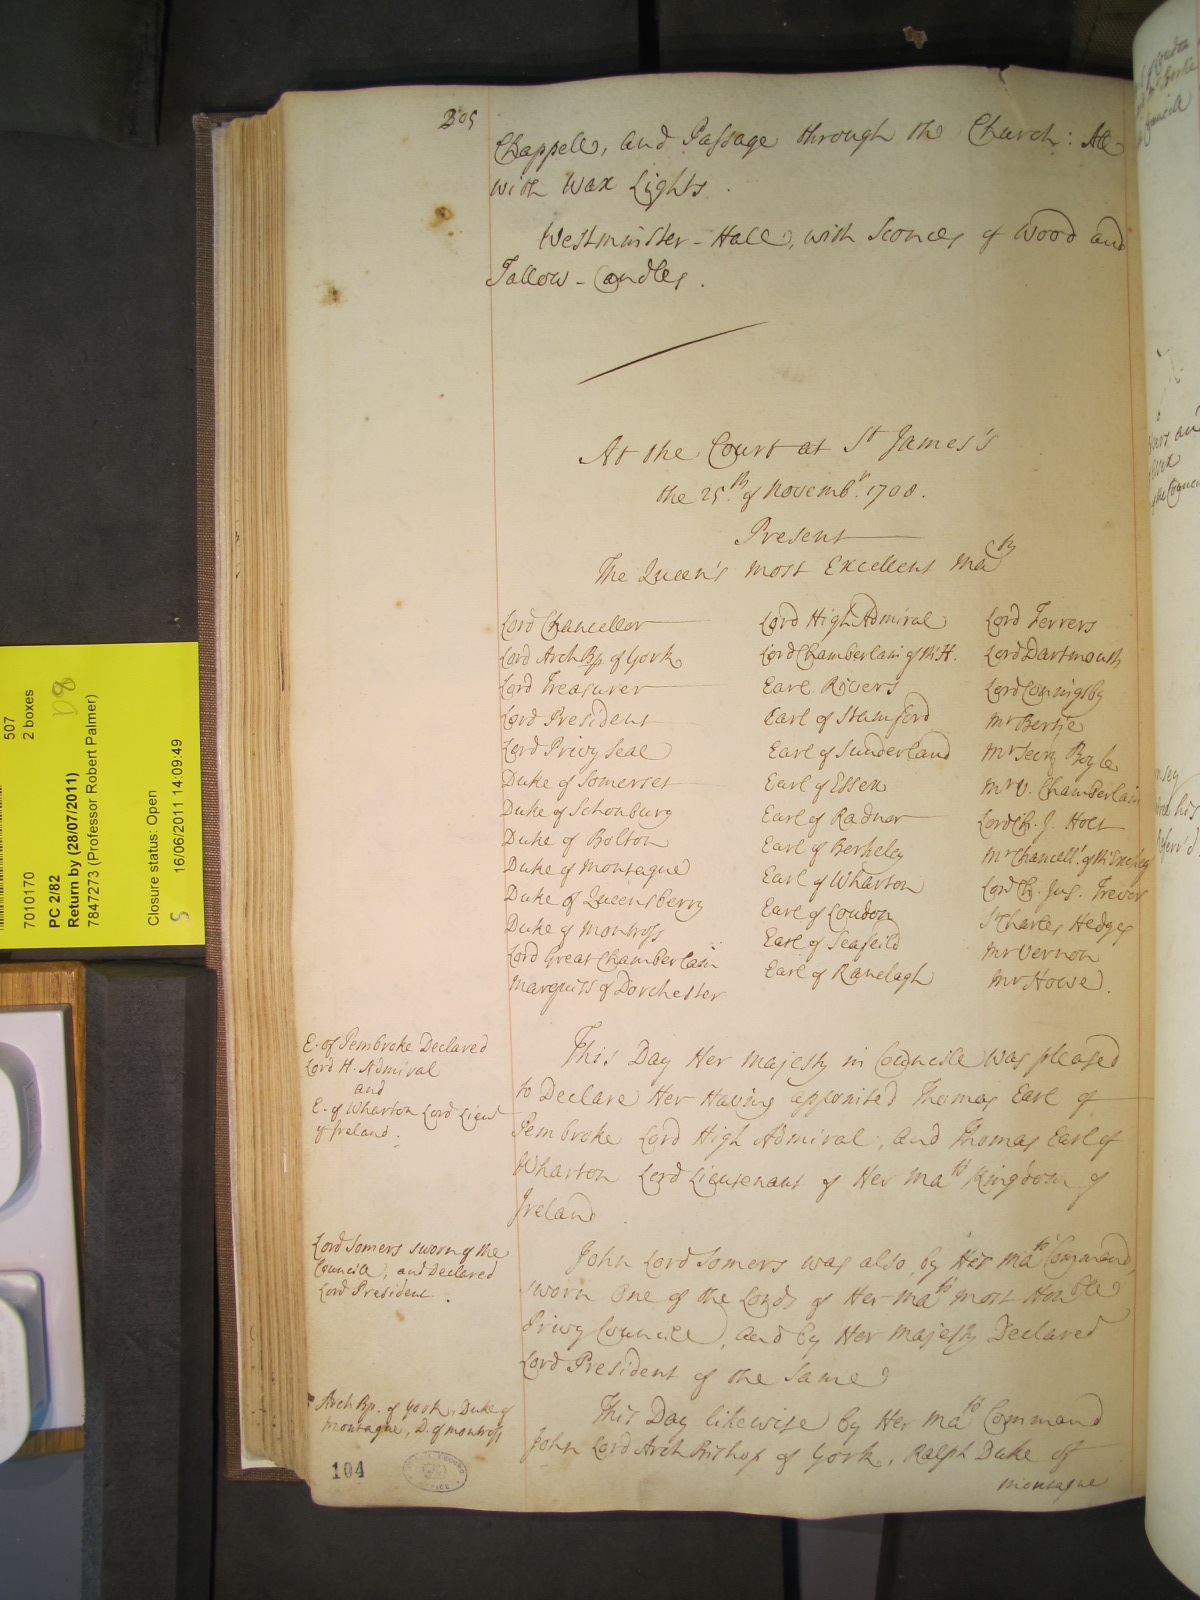 205
Chappell, and Passage through the Church: All
with Wax Lights.
Westminster-Hall, with Sconces of Wood and
Tallow-Candles.
At the Court at St James's
the 25th. of Novembr. 1708.
Present
The Queen's most Excellent Maty
Lord Chancellor
Lord ArchBp. of York
Lord Treasurer
Lord President
Lord Privy Seal
Duke of Somerset
Duke of Schonburg
Duke of Bolton
Duke of Montague
Duke of Queensberry
Duke of Montross
Lord Great Chamberlain
Marquiss of Dorchester
Lord High Admiral
Lord Chamberlain of ye H.
Earl Rivers
Earl of Stamford
Earl of Sunderland
Earl of Essex
Earl of Radnor
Earl of Berkeley
Earl of Wharton
Earl of Loudon
Earl of Seafeild
Earl of Ranelagh
Lord Ferrers
Lord Dartmouth
Lord Coningsby
Mr Bertie
Mr Secry Boyle
Mr V. Chamberlain
Lord Ch. J. Holt
Mr Chancellr. of ye Excheqr
Lord Ch. Jus. Trevor
Sr Charles Hedges
Mr Vernon
Mr Howe.
E. of Pembroke Declared
Lord H. Admiral
and
E. of Wharton Lord Lieut
of Ireland.
This Day Her Majesty in Councill was pleased
to Declare Her Having appointed Thomas Earl of
Pembroke Lord High Admiral, and Thomas Earl of
Wharton Lord Lieutenant of Her Mats Kingdom of
Ireland.
Lord Somers sworn of the
Councill, and Declared
Lord President.
John Lord Somers was also by Her Mats Command,
sworn One of the Lords of Her Mats most Honble
Privy Councill, and by Her Majesty Declared
Lord President of the Same
ArchBp. of York, Duke of
Montague, D. of Montross
This Day likewise by Her Mats Command
John Lord Arch Bishop of York, Ralph Duke of
Montague
104
507
2 boxes
7010170
PC 2/82
D8
Return by (28/07/2011)
7847273 (Professor Robert Palmer)
Closure status: Open
S
16/06/2011 14:09:49